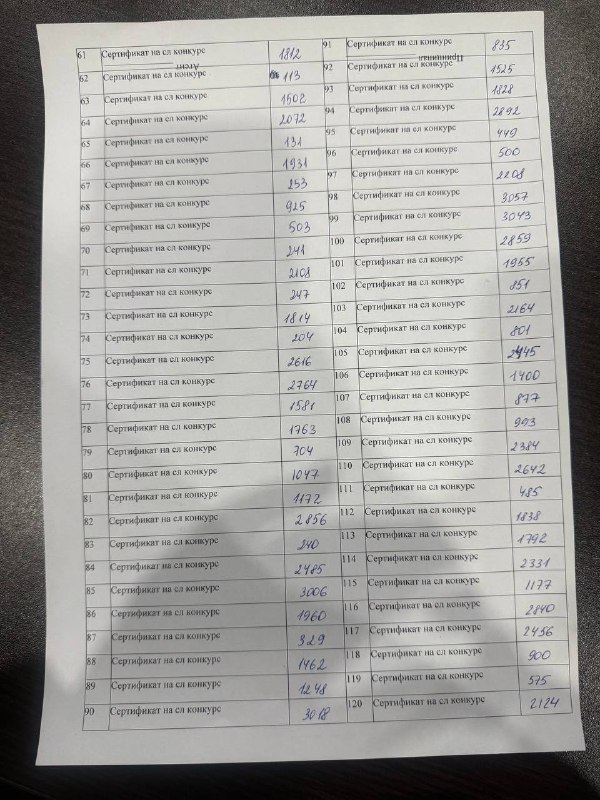 61 Сертификат на сл конкурс 1812
Агент
62 Сертификат на сл конкурс 113
63 Сертификат на сл конкурс 1502
64 Сертификат на сл конкурс 2072
65 Сертификат на сл конкурс 131
66 Сертификат на сл конкурс 1931
67 Сертификат на сл конкурс 253
68 Сертификат на сл конкурс 925
69 Сертификат на сл конкурс 503
70 Сертификат на сл конкурс 241
71 Сертификат на сл конкурс 2108
72 Сертификат на сл конкурс 247
73 Сертификат на сл конкурс 1814
74 Сертификат на сл конкурс 204
75 Сертификат на сл конкурс 2616
76 Сертификат на сл конкурс 2764
77 Сертификат на сл конкурс 1581
78 Сертификат на сл конкурс 1763
79 Сертификат на сл конкурс 704
80 Сертификат на сл конкурс 1047
81 Сертификат на сл конкурс 1172
82 Сертификат на сл конкурс 2856
83 Сертификат на сл конкурс 240
84 Сертификат на сл конкурс 2485
85 Сертификат на сл конкурс 3006
86 Сертификат на сл конкурс 1960
87 Сертификат на сл конкурс 329
88 Сертификат на сл конкурс 1462
89 Сертификат на сл конкурс 1248
90 Сертификат на сл конкурс 3018
91 Сертификат на сл конкурс 835
Принципал
92 Сертификат на сл конкурс 1525
93 Сертификат на сл конкурс 1828
94 Сертификат на сл конкурс 2892
95 Сертификат на сл конкурс 449
96 Сертификат на сл конкурс 500
97 Сертификат на сл конкурс 2208
98 Сертификат на сл конкурс 3057
99 Сертификат на сл конкурс 3043
100 Сертификат на сл конкурс 2859
101 Сертификат на сл конкурс 1955
102 Сертификат на сл конкурс 851
103 Сертификат на сл конкурс 2164
104 Сертификат на сл конкурс 801
105 Сертификат на сл конкурс
106 Сертификат на сл конкурс 1400
107 Сертификат на сл конкурс 877
108 Сертификат на сл конкурс 993
109 Сертификат на сл конкурс 2384
110 Сертификат на сл конкурс 2642
111 Сертификат на сл конкурс 485
112 Сертификат на сл конкурс 1838
113 Сертификат на сл конкурс 1792
114 Сертификат на сл конкурс 2331
115 Сертификат на сл конкурс 1177
116 Сертификат на сл конкурс 2840
117 Сертификат на сл конкурс 2456
118 Сертификат на сл конкурс 900
119 Сертификат на сл конкурс 575
120 Сертификат на сл конкурс 2124